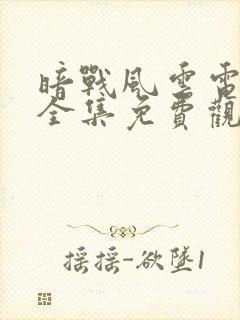 暗戰風雲電
全集免費觀
搖搖-欲墜1